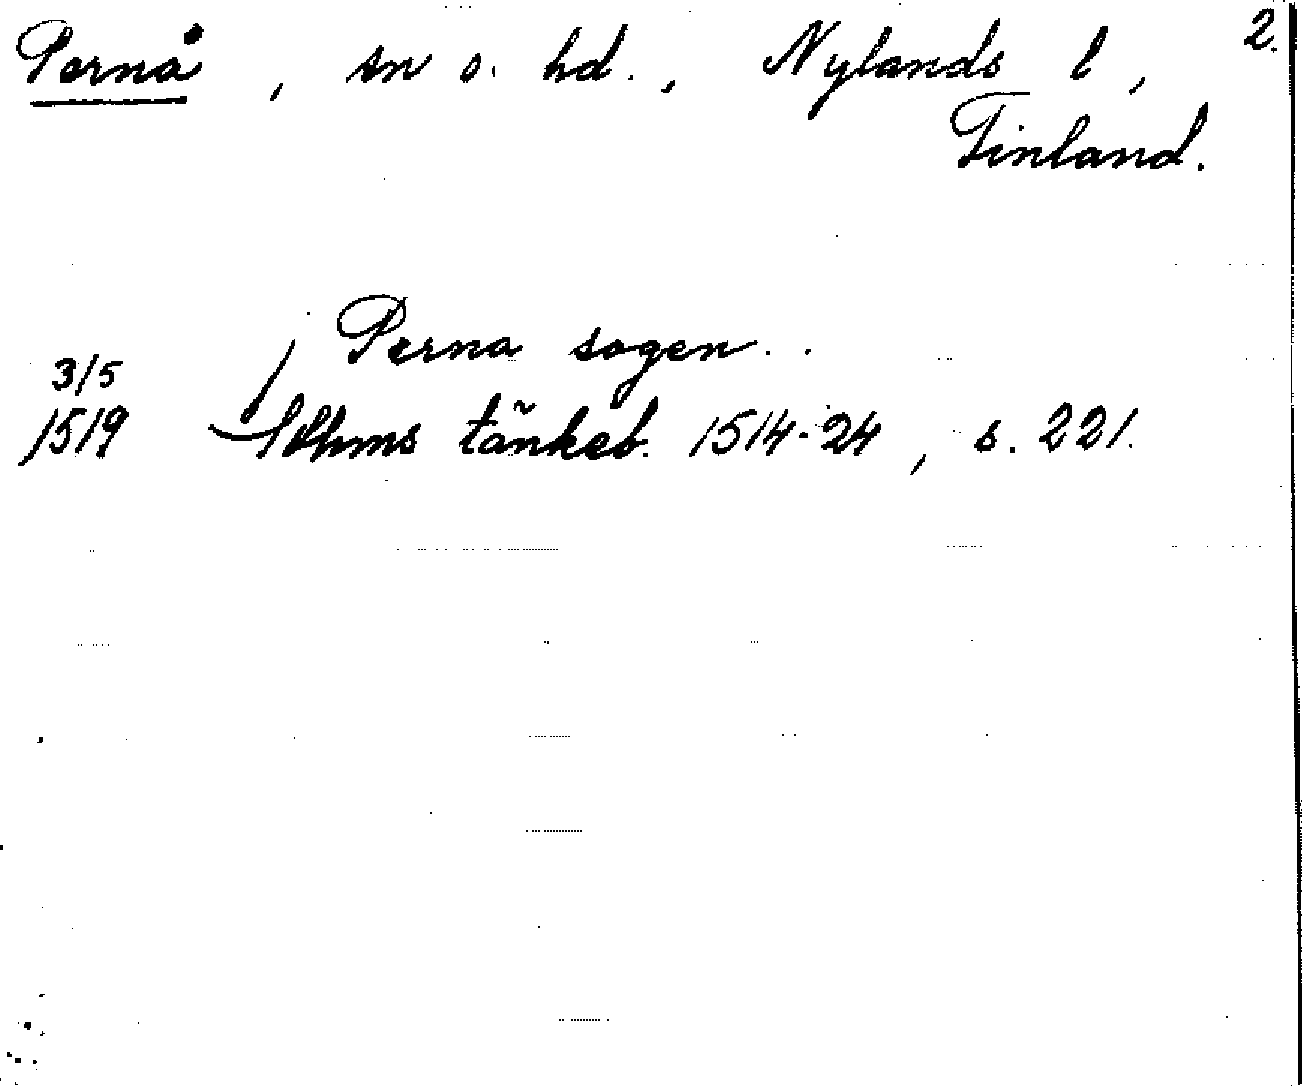 Pernå, sn o. hd., Nylands l, 2.
Finland.
Perna sogen..
3/5
1519 Sthms tänkeb. 1514-24, s. 221.